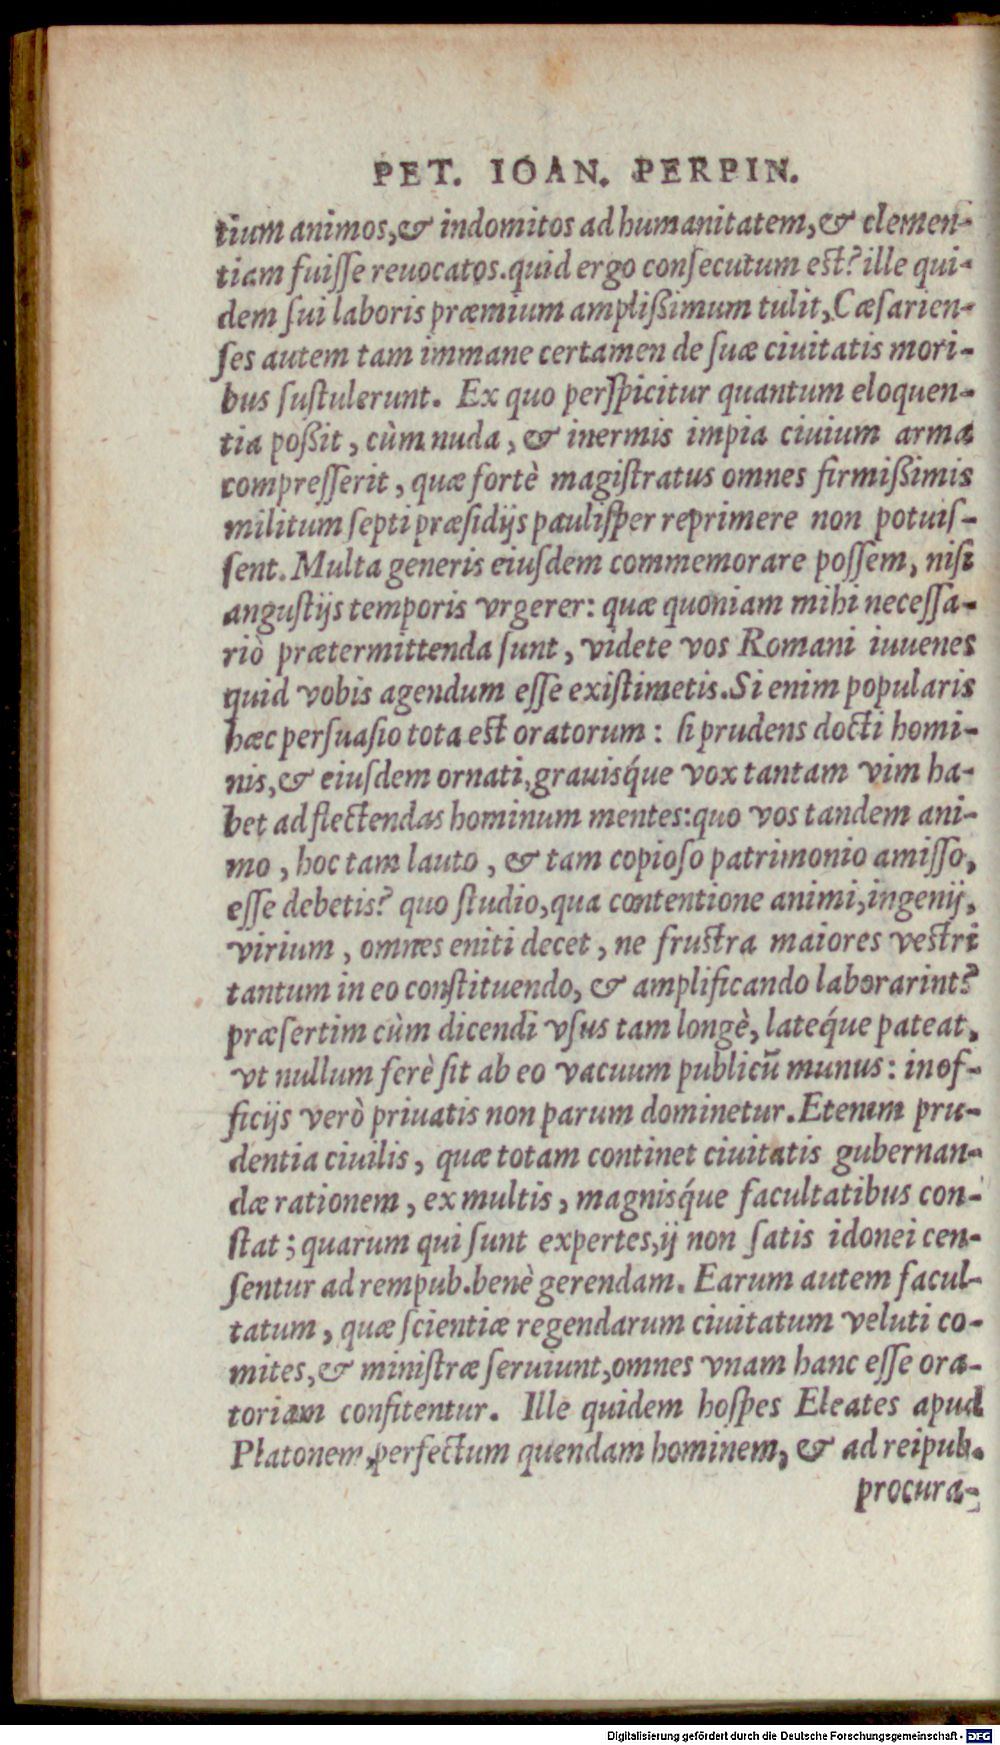 PET. IOAN. PERPIN.
tium animos, & indomitos ad humanitatem, & clemen-
tiam fuiſſe reuocatos. quid ergo conſecutum est? ille qui-
dem ſui laboris præmium amplißimum tulit, Cæſarien-
ſes autem tam immane certamen de ſuæ ciuitatis mori-
bus ſuſtulerunt. Ex quo perſpicitur quantum eloquen-
tia poßit, cùm nuda, & inermis impia ciuium arma
compreſſerit, quæ fortè magiſtratus omnes firmißimis
militum ſepti præſidijs pauliſper reprimere non potuiſ-
ſent. Multa generis eiuſdem commemorare poſſem, niſi
anguſtijs temporis vrgerer: quæ quoniam mihi neceſſa-
riò prætermittenda ſunt, videte vos Romani iuuenes
quid vobis agendum eſſe exiſtimetis. Si enim popularis
hæc perſuaſio tota est oratorum: ſi prudens docti homi-
nis, & eiuſdem ornati, grauisq́ue vox tantam vim ha-
bet ad flectendas hominum mentes: quo vos tandem ani-
mo, hoc tam lauto, & tam copioſo patrimonio amiſſo,
eſſe debetis? quo ſtudio, qua contentione animi, ingenij,
virium, omnes eniti decet, ne fruſtra maiores veſtri
tantum in eo conſtituendo, & amplificando laborarint?
præſertim cùm dicendi vſus tam longè, lateq́ue pateat,
vt nullum ferè ſit ab eo vacuum publicū munus: in of-
ficijs verò priuatis non parum dominetur. Etenim pru-
dentia ciuilis, quæ totam continet ciuitatis gubernan-
dæ rationem, ex multis, magnisq́ue facultatibus con-
ſtat; quarum qui ſunt expertes, ij non ſatis idonei cen-
ſentur ad rempub. benè gerendam. Earum autem facul-
tatum, quæ ſcientiæ regendarum ciuitatum veluti co-
mites, & miniſtræ ſeruiunt, omnes vnam hanc eſſe ora-
toriam confitentur. Ille quidem hoſpes Eleates apud
Platonem, perfectum quendam hominem, & ad reipub.
procura-
Digitalisierung gefördert durch die Deutsche Forschungsgemeinschaft - DFG